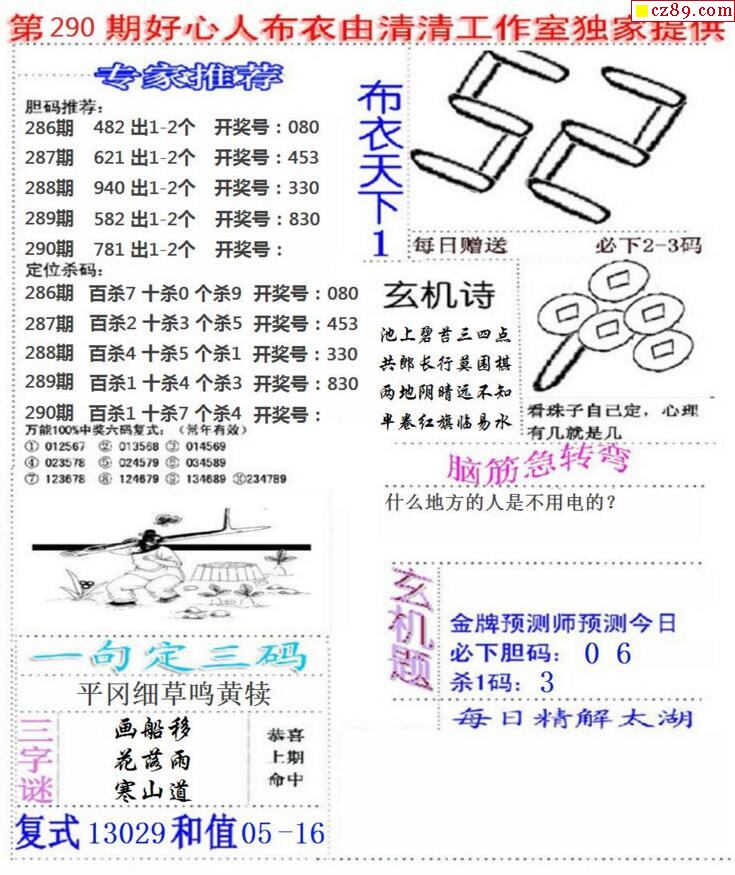 cz89.com
第290期好心人布衣由清清工作室独家提供
专家推荐
胆码推荐：
286期 482 出1-2个 开奖号：080
287期 621 出1-2个 开奖号：453
288期 940 出1-2个 开奖号：330
289期 582 出1-2个 开奖号：830
290期 781 出1-2个 开奖号：
定位杀码：
286期 百杀7 十杀0 个杀9 开奖号：080
287期 百杀2 十杀3 个杀5 开奖号：453
288期 百杀4 十杀5 个杀1 开奖号：330
289期 百杀1 十杀4 个杀3 开奖号：830
290期 百杀1 十杀7 个杀4 开奖号：
万能100%中奖六码复式：（常年有效）
① 012567 ② 013568 ③ 014569
④ 023578 ⑤ 024579 ⑥ 034589
⑦ 123678 ⑧ 124679 ⑨ 134689 ⑩234789
一句定三码
平冈细草鸣黄犊
三字谜
画船移
花落雨
寒山道
恭喜
上期
命中
复式13029和值05-16
布衣天下1
52
每日赠送 必下2-3码
玄机诗
池上碧苔三四点
共郎长行莫围棋
两地阴晴远不知
半卷红旗临易水
看珠子自己定，心理
有几就是几
脑筋急转弯
什么地方的人是不用电的？
玄机题
金牌预测师预测今日
必下胆码： 0 6
杀1码： 3
每日精解太湖